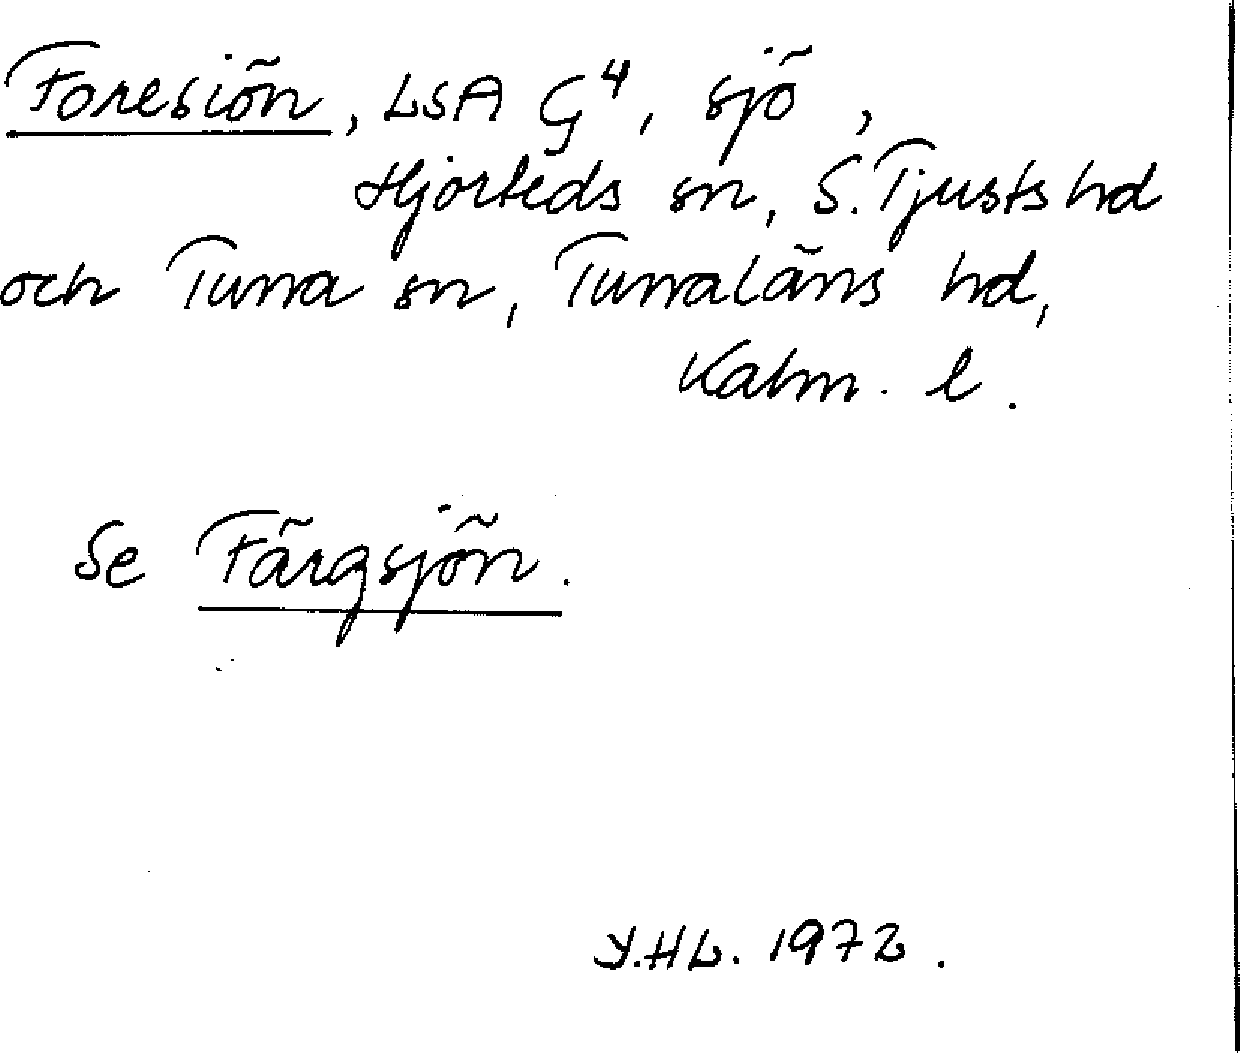 Foresiön, LSA G⁴, sjö,
Hjorteds sn, S. Tjusts hd
och Tuna sn, Tunaläns hd,
Kalm. l.
Se Färgsjön.
Y.HL. 1972.